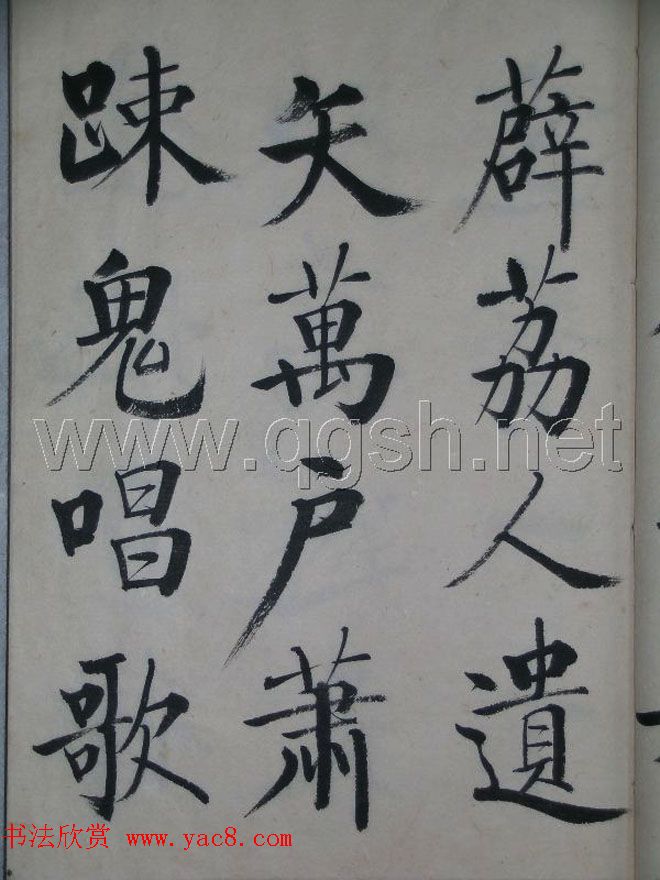 薜荔人遺
矢萬户蕭
踈鬼唱歌
www.qgsh.net
书法欣赏 www.yac8.com